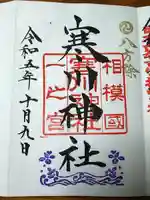 八方除
相模國
寒川神社
一之宮
令和五年十月九日